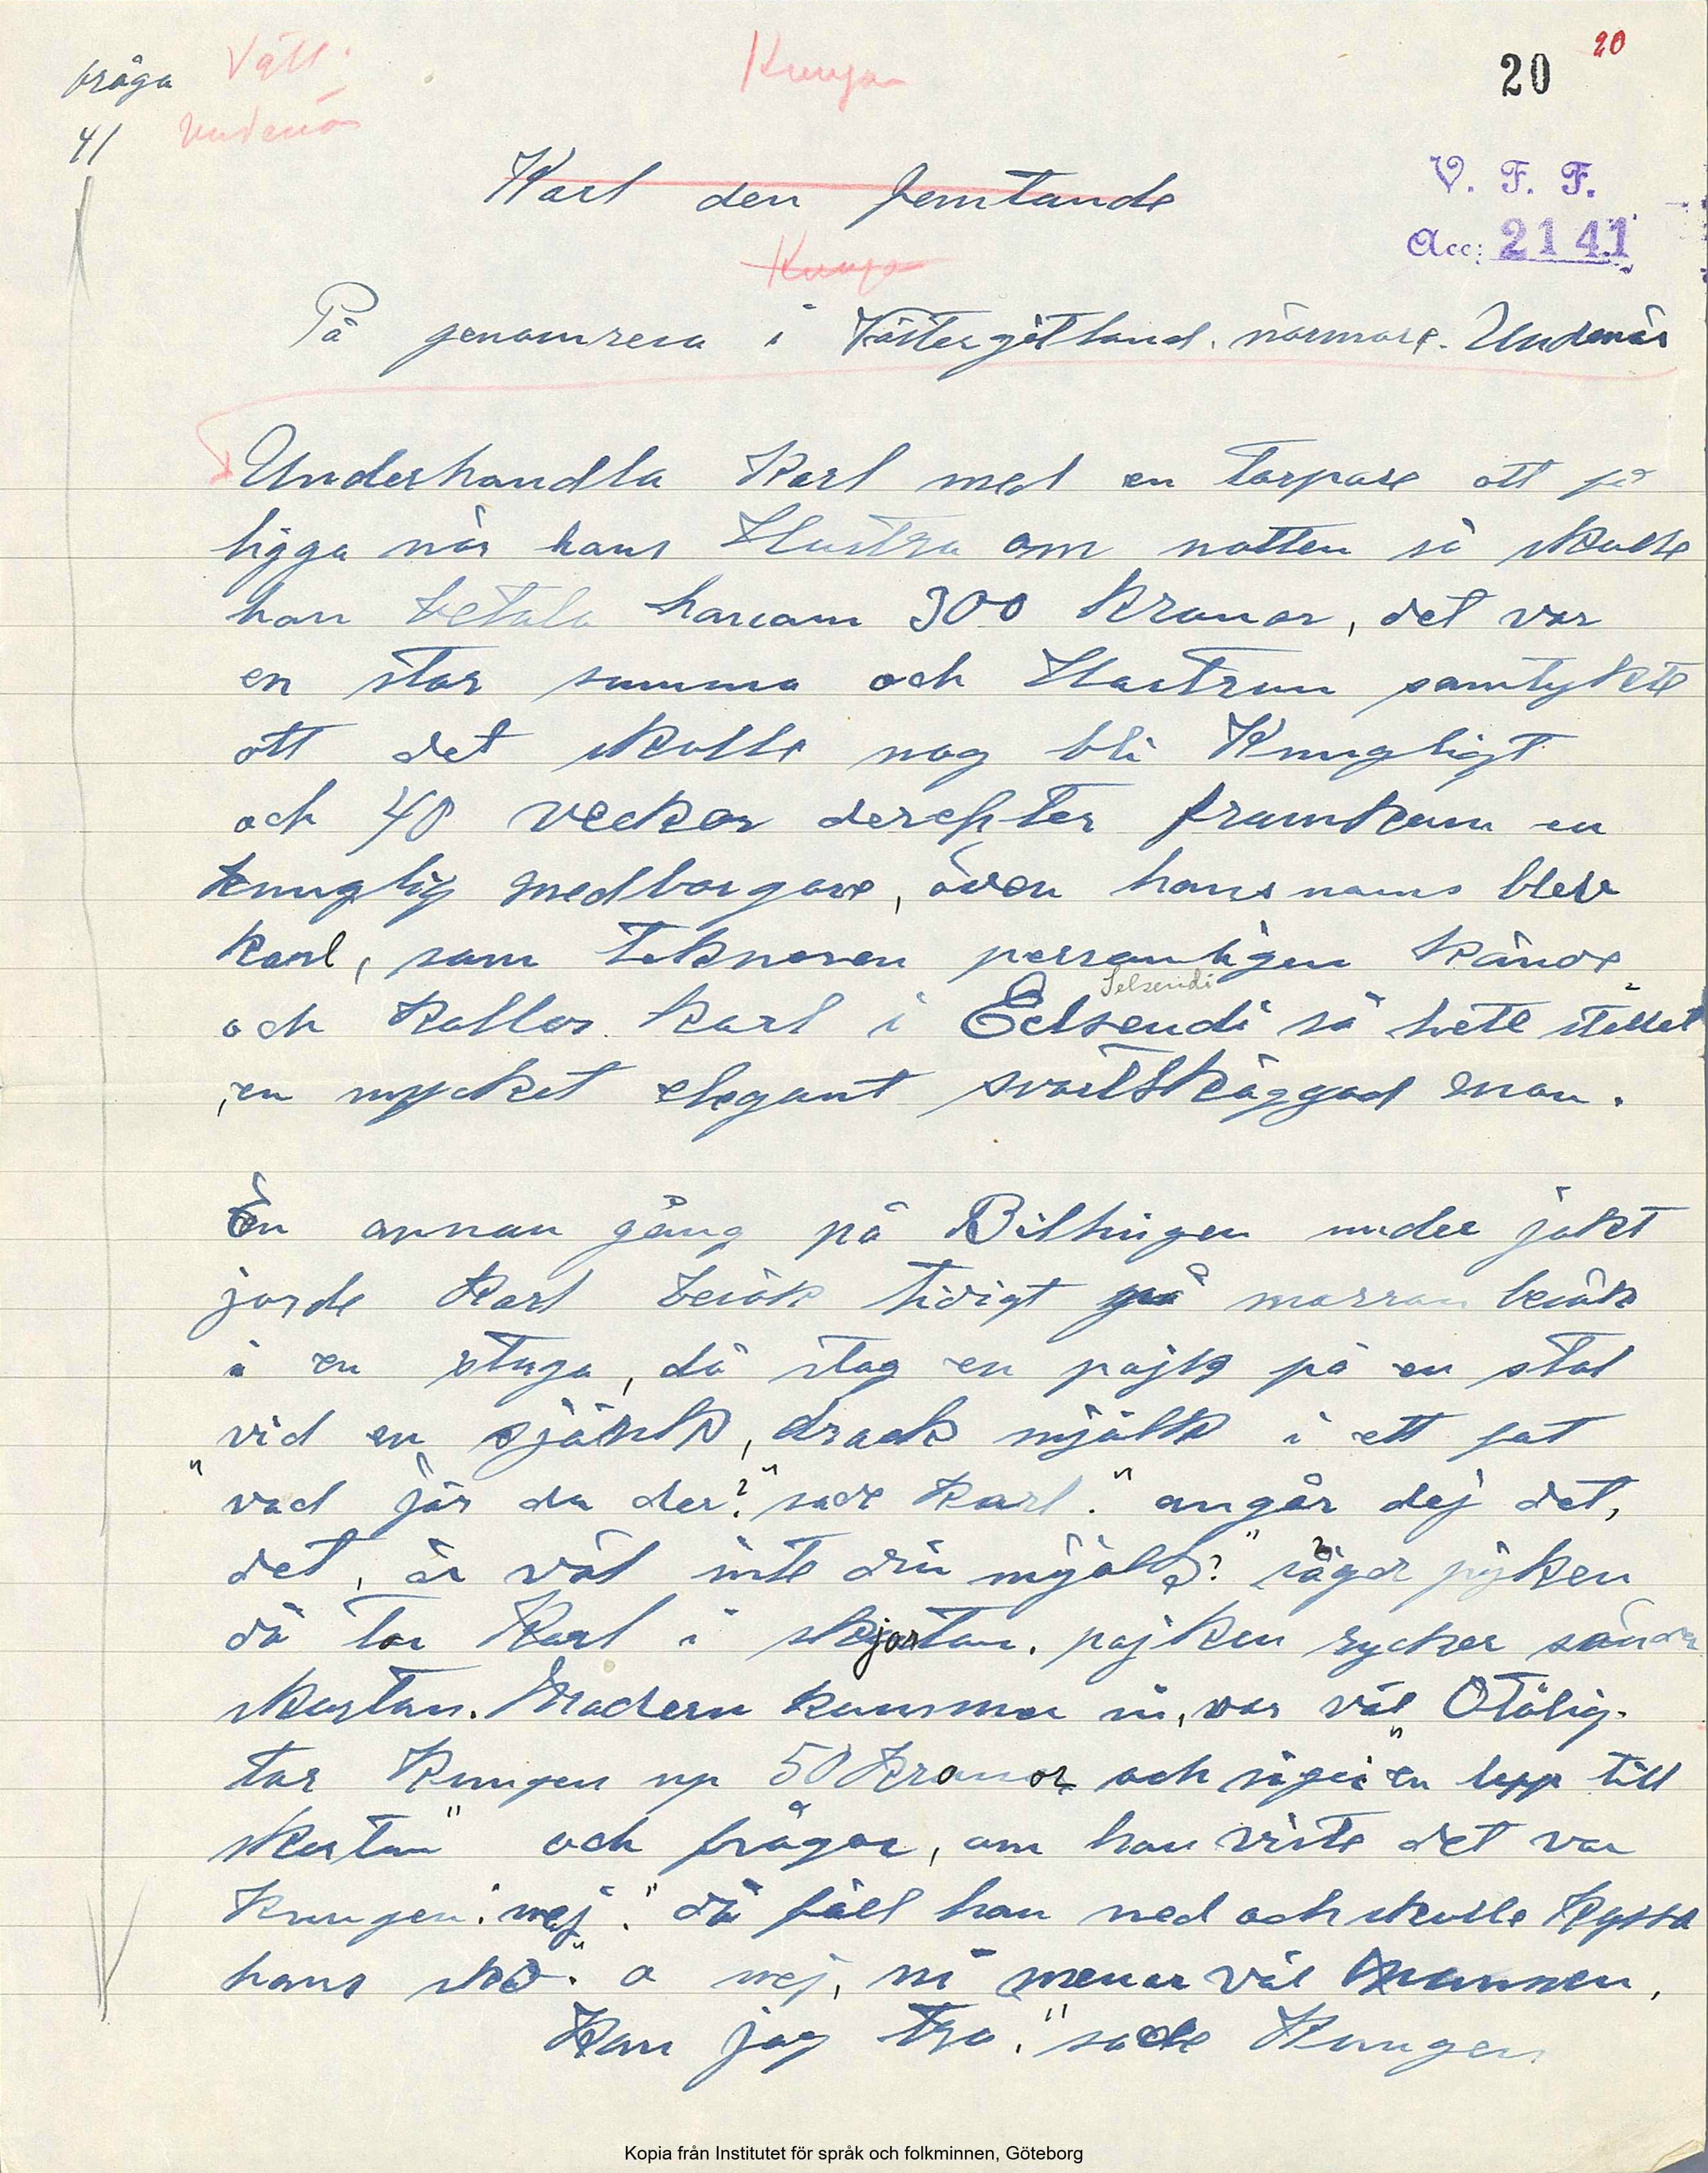 fråga Vätt. Kungar 20 20
41 Undenäs
Karl den femtande
V. F. F.
Acc: 2141
Kungar
På genomresa i Västergötland. närmare. Undenäs
Underhandla Karl med en torpare att få
ligga när hans Hustru om natten så skulle
han betala honom 300 Kronor, det var
en stor summa och Hustrun samtykte
att det skulle nog bli Kungligt
och 40 veckor derefter framkom en
kunglig medborgare, även hans namn blev
Karl, som teknaren personligen kände
Selsendi
och kallas Karl i Edsendi så hete stället
, en mycket elegant svartskäggad man.
En annan gång på Billingen under jakt
jorde Karl besök tidigt på morron besök
i en stuga, då stog en pojk på en stol
vid en sjänk, drack mjölk i ett fat
"vad jör du der?" sade Karl. "angår dej det,
det, är väl inte din mjölk?" säger pojken
då tar Karl i skjortan, pojken rycker sönder
skortan. Modern kommer in, var väl Otålig.
tar Kungen up 50 Kronor och säger "en lapp till
skortan" och frågar, om han viste det var
Kungen. "nej". då föll han ned och skulle kyssa
hans skor. "o nej, ni menar väl mannen,
Kan jag tro." sade Kungen
Kopia från Institutet för språk och folkminnen, Göteborg